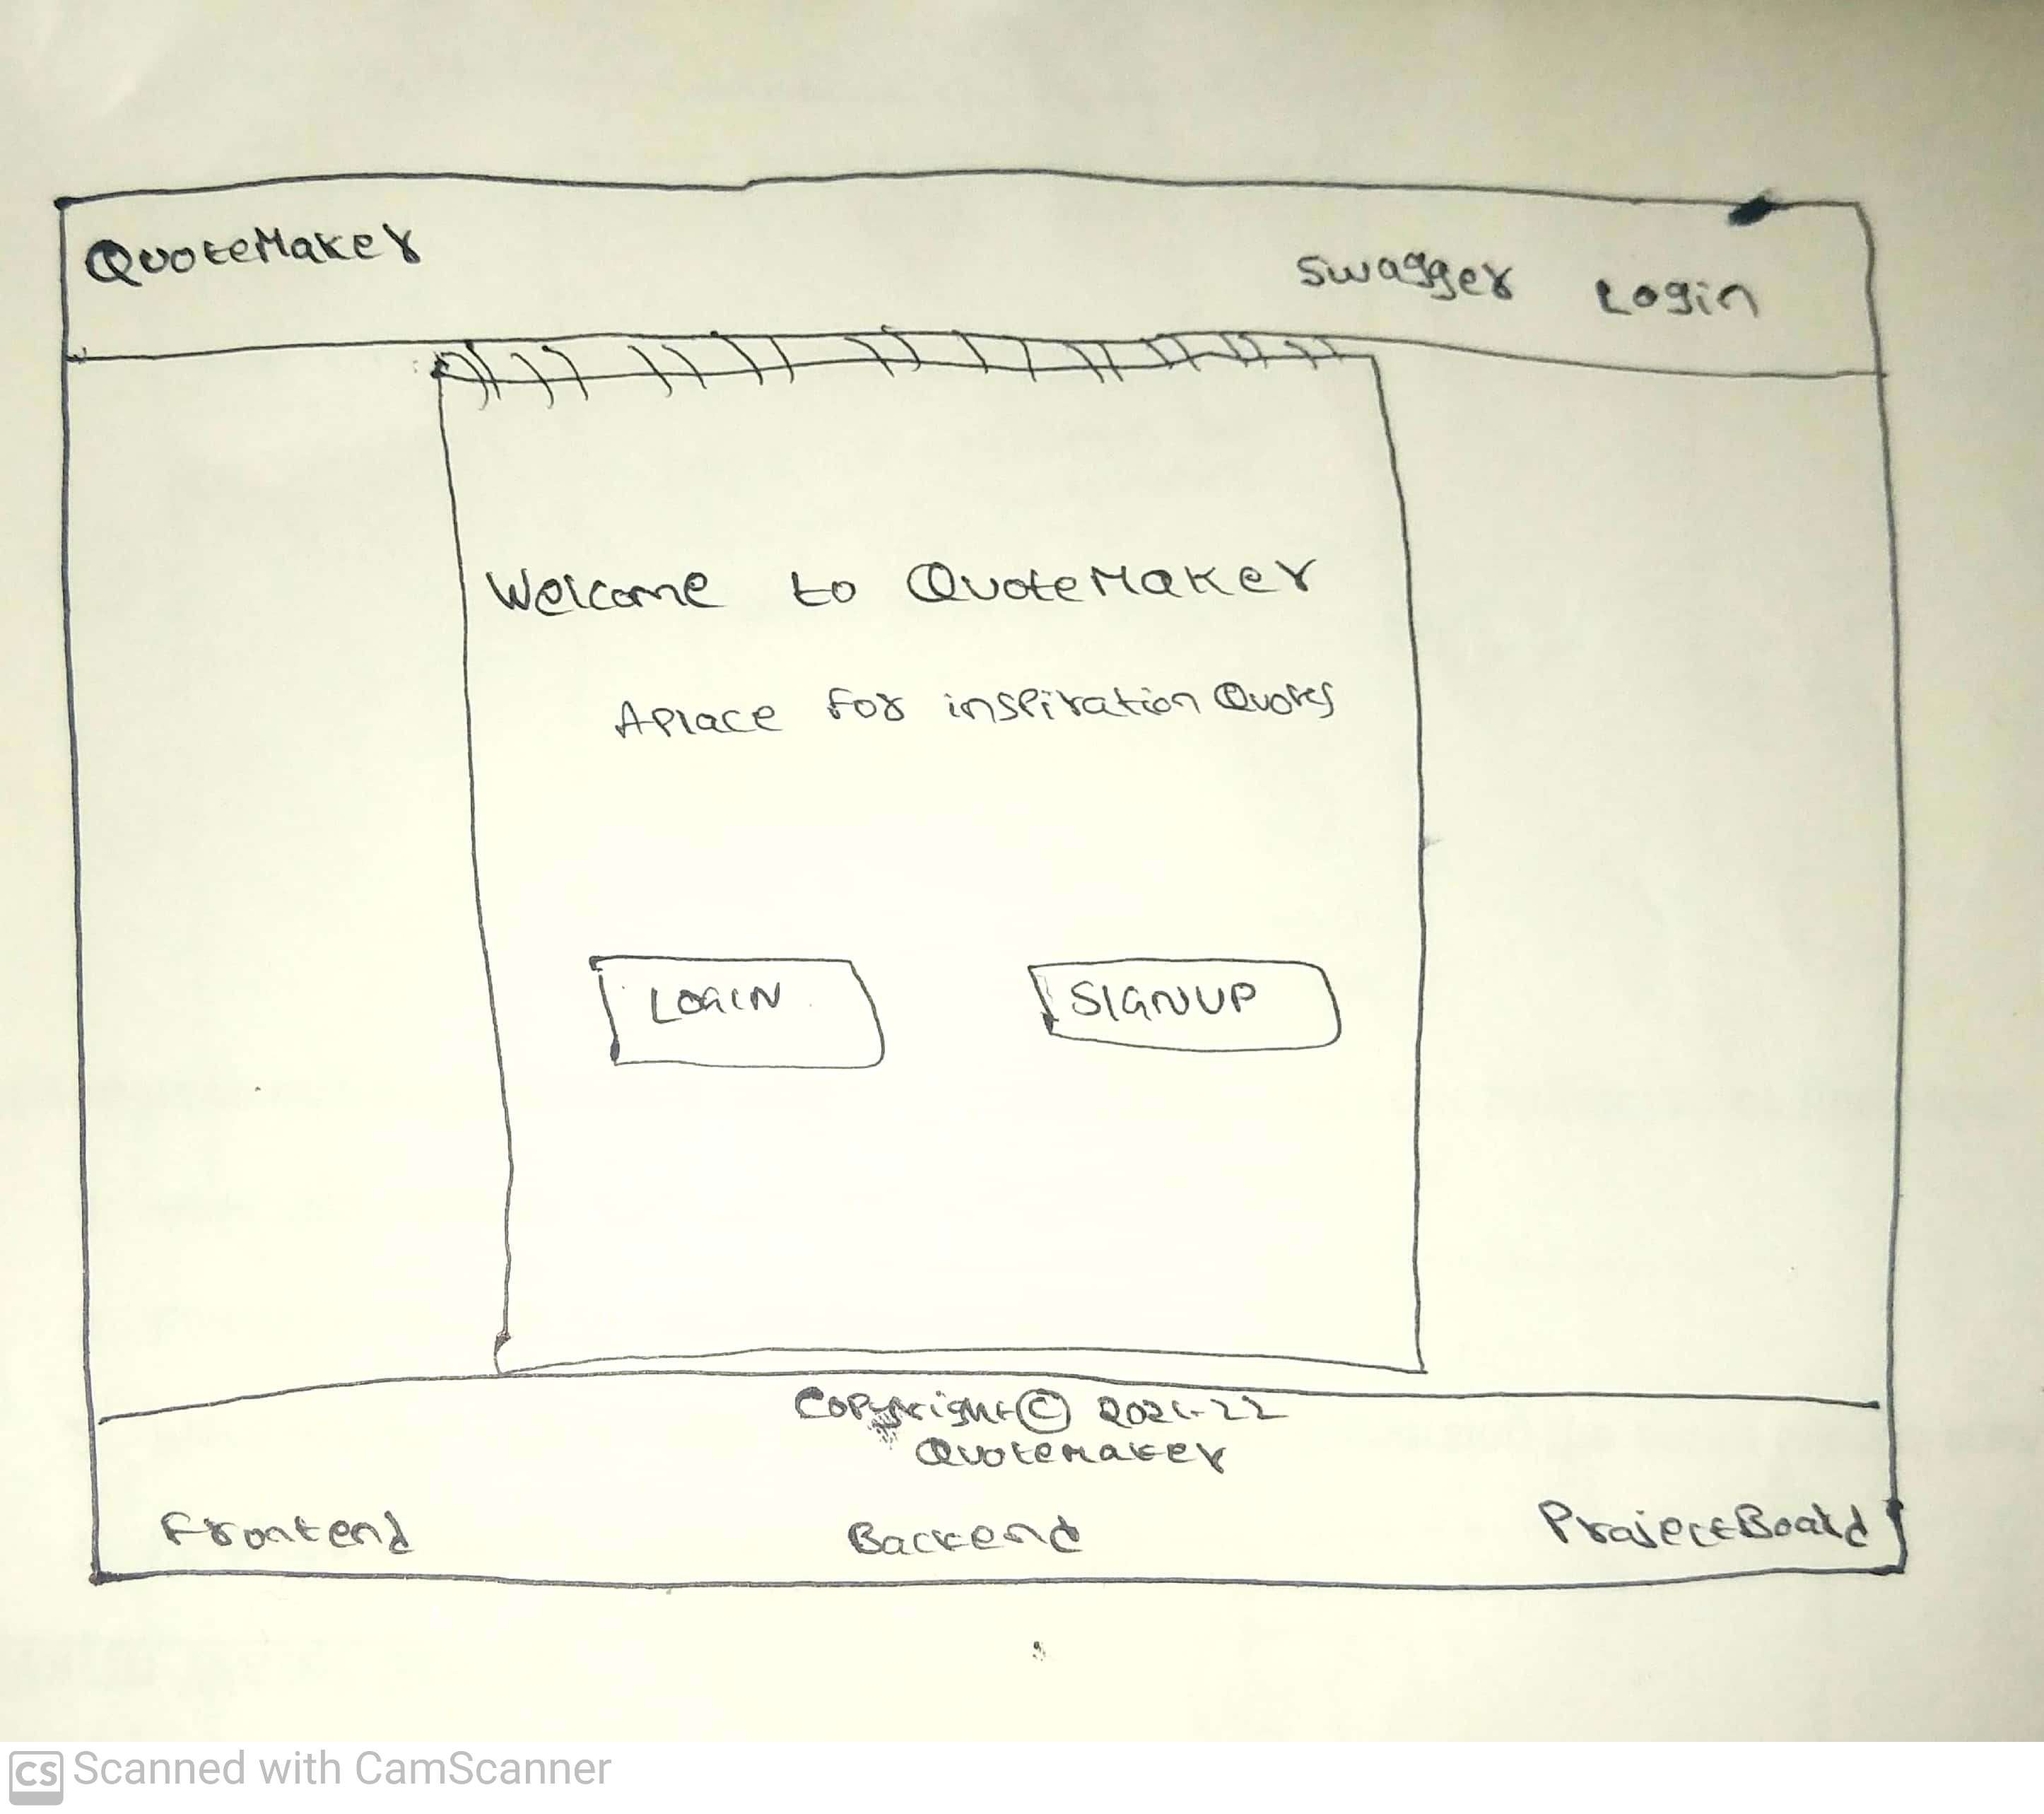 QuoteMaker
Swagger Login
Welcome to QuoteMaker
A place for inspiration Quotes
LOGIN SIGNUP
Copyright © 2021-22
Quotemaker
Frontend Backend ProjectBoard
CS Scanned with CamScanner